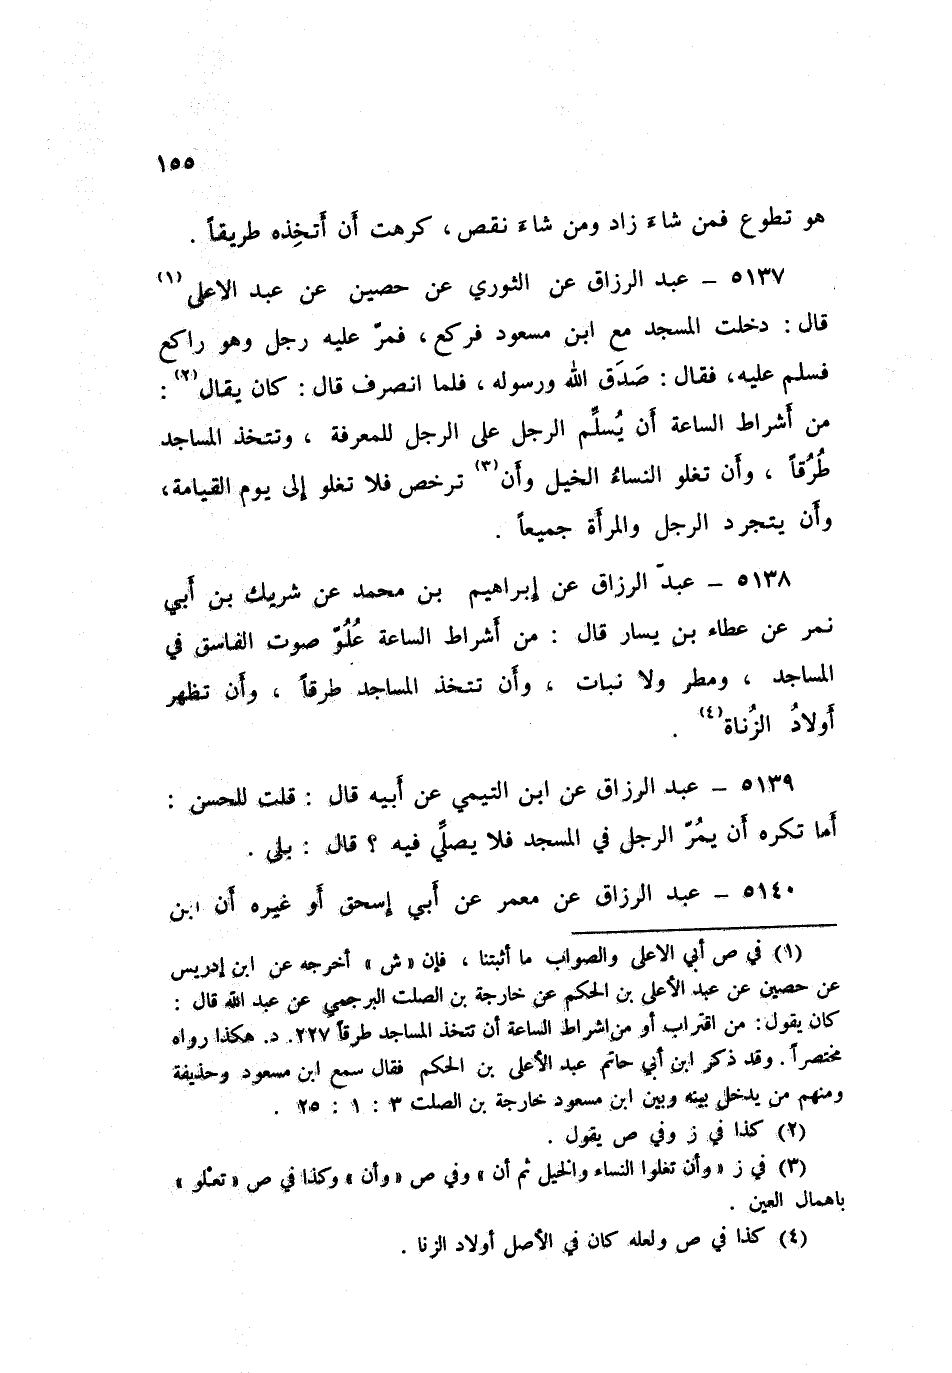 ١٥٥
هو تطوع فمن شاءَ زاد ومن شاءَ نقص ، كرهت أَن أَتخِذه طريقاً .
٥١٣٧ – عبد الرزاق عن الثوري عن حصين عن عبد الاعلى(١)
قال : دخلت المسجد مع ابن مسعود فركع ، فمرّ عليه رجل وهو راكع
فسلم عليه، فقال : صَدَق الله ورسوله ، فلما انصرف قال : كان يقال(٢) :
من أَشراط الساعة أَن يُسلِّم الرجل على الرجل للمعرفة ، وتتخذ المساجد
طُرُقاً ، وأَن تغلو النساءُ الخيل وأَن(٣) ترخص فلا تغلو إِلى يوم القيامة،
وأَن يتجرد الرجل والمرأَة جميعاً .
٥١٣٨ – عبد الرزاق عن إِبراهيم بن محمد عن شريك بن أَبي
نمر عن عطاء بن يسار قال : من أَشراط الساعة عُلُوّ صوت الفاسق في
المساجد ، ومطر ولا نبات ، وأَن تتخذ المساجد طرقاً ، وأَن تظهر
أَولادُ الزُناة(٤) .
٥١٣٩ – عبد الرزاق عن ابن التيمي عن أَبيه قال : قلت للحسن :
أَما تكره أَن يمُرّ الرجل في المسجد فلا يصلِّي فيه ؟ قال : بلى .
٥١٤٠ – عبد الرزاق عن معمر عن أَبي إِسحق أَو غيره أَن ابن
(١) في ص أبي الاعلى والصواب ما أثبتنا ، فإن «ش» أخرجه عن ابن إدريس
عن حصين عن عبد الأعلى بن الحكم عن خارجة بن الصلت البرجمي عن عبد الله قال :
كان يقول : من اقتراب أو من اشراط الساعة أن تتخذ المساجد طرقاً ٢٢٧. د. هكذا رواه
مختصراً . وقد ذكر ابن أبي حاتم عبد الأعلى بن الحكم فقال سمع ابن مسعود وحذيفة
ومنهم من يدخل بينه وبين ابن مسعود خارجة بن الصلت ٣ : ١ : ٢٥ .
(٢) كذا في ز وفي ص يقول .
(٣) في ز « وأن تغلوا النساء والخيل ثم أن » وفي ص «وأن» وكذا في ص « تعلو »
باهمال العين .
(٤) كذا في ص ولعله كان في الأصل أولاد الزنا .